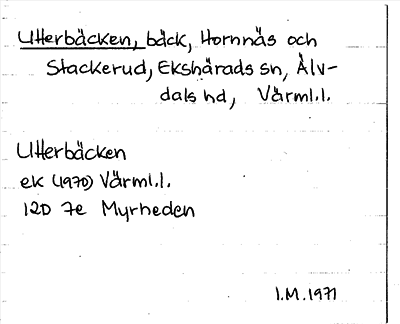 Utterbäcken, bäck, Hornnäs och
Stackerud, Ekshärads sn, Älv-
dals hd, Värml.l.
Utterbäcken
ek (1970) Värml.l.
12D 7e Myrheden
I.M. 1971